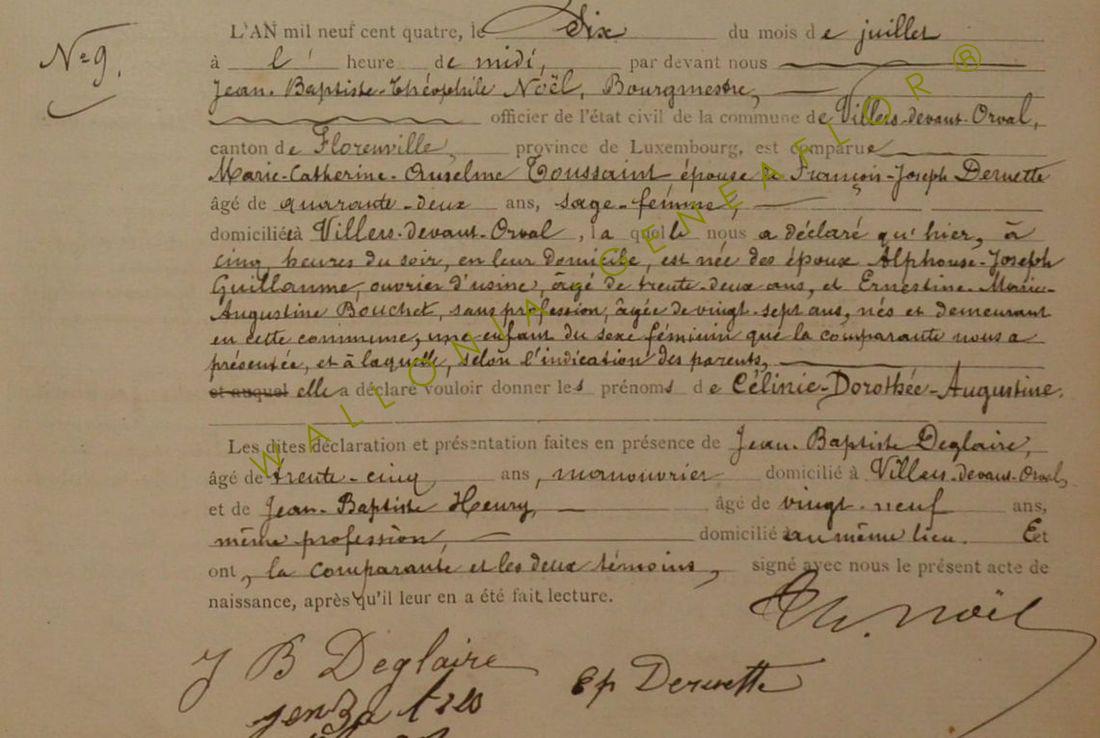 N° 9.
L'AN mil neuf cent quatre, le Six du mois de juillet
à l' heure de midi, par devant nous
Jean-Baptiste-Théophile Noël, Bourgmestre,
officier de l'état civil de la commune de Villers-devant-Orval,
canton de Florenville, province de Luxembourg, est comparue
Marie-Catherine-Anselme Toussaint épouse de François-Joseph Deruette
âgé de quarante-deux ans, sage-femme,
domiciliée à Villers-devant-Orval, laquelle nous a déclaré qu'hier, à
cinq heures du soir, en leur domicile, est née des époux Alphonse-Joseph
Guillaume, ouvrier d'usine, âgé de trente-deux ans, et Ernestine-Marie-
Augustine Bouchet, sans profession, âgée de vingt-sept ans, nés et demeurant
en cette commune, une enfant du sexe féminin que la comparante nous a
présentée, et à laquelle, selon l'indication des parents,
et auquel elle a déclaré vouloir donner les prénoms de Célinie-Dorothée-Augustine.
Les dites déclaration et présentation faites en présence de Jean-Baptiste Deglaire,
âgé de trente-cinq ans, manouvrier domicilié à Villers-devant-Orval,
et de Jean-Baptiste Henry, âgé de vingt-neuf ans,
même profession, domicilié au même lieu. Et
ont, la comparante et les deux témoins, signé avec nous le présent acte de
naissance, après qu'il leur en a été fait lecture.
Th. Noël
J B Deglaire
ep Deruette
WALLONIA GENEAFLOR ®